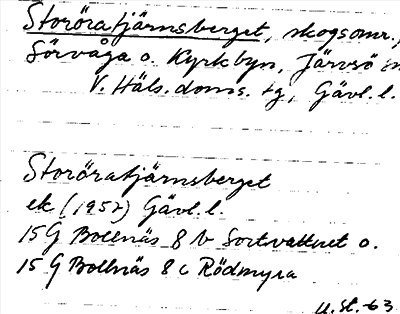 Storöratjärnsberget, skogsomr.,
Sörvåga o. Kyrkbyn, Järvsö
V. Häls. doms. tg, Gävl. l.
Storöratjärnsberget
ek (1952) Gävl. l.
15 G Bollnäs 8 b Sortvattnet o.
15 G Bollnäs 8 c Rödmyra
U. St. -63